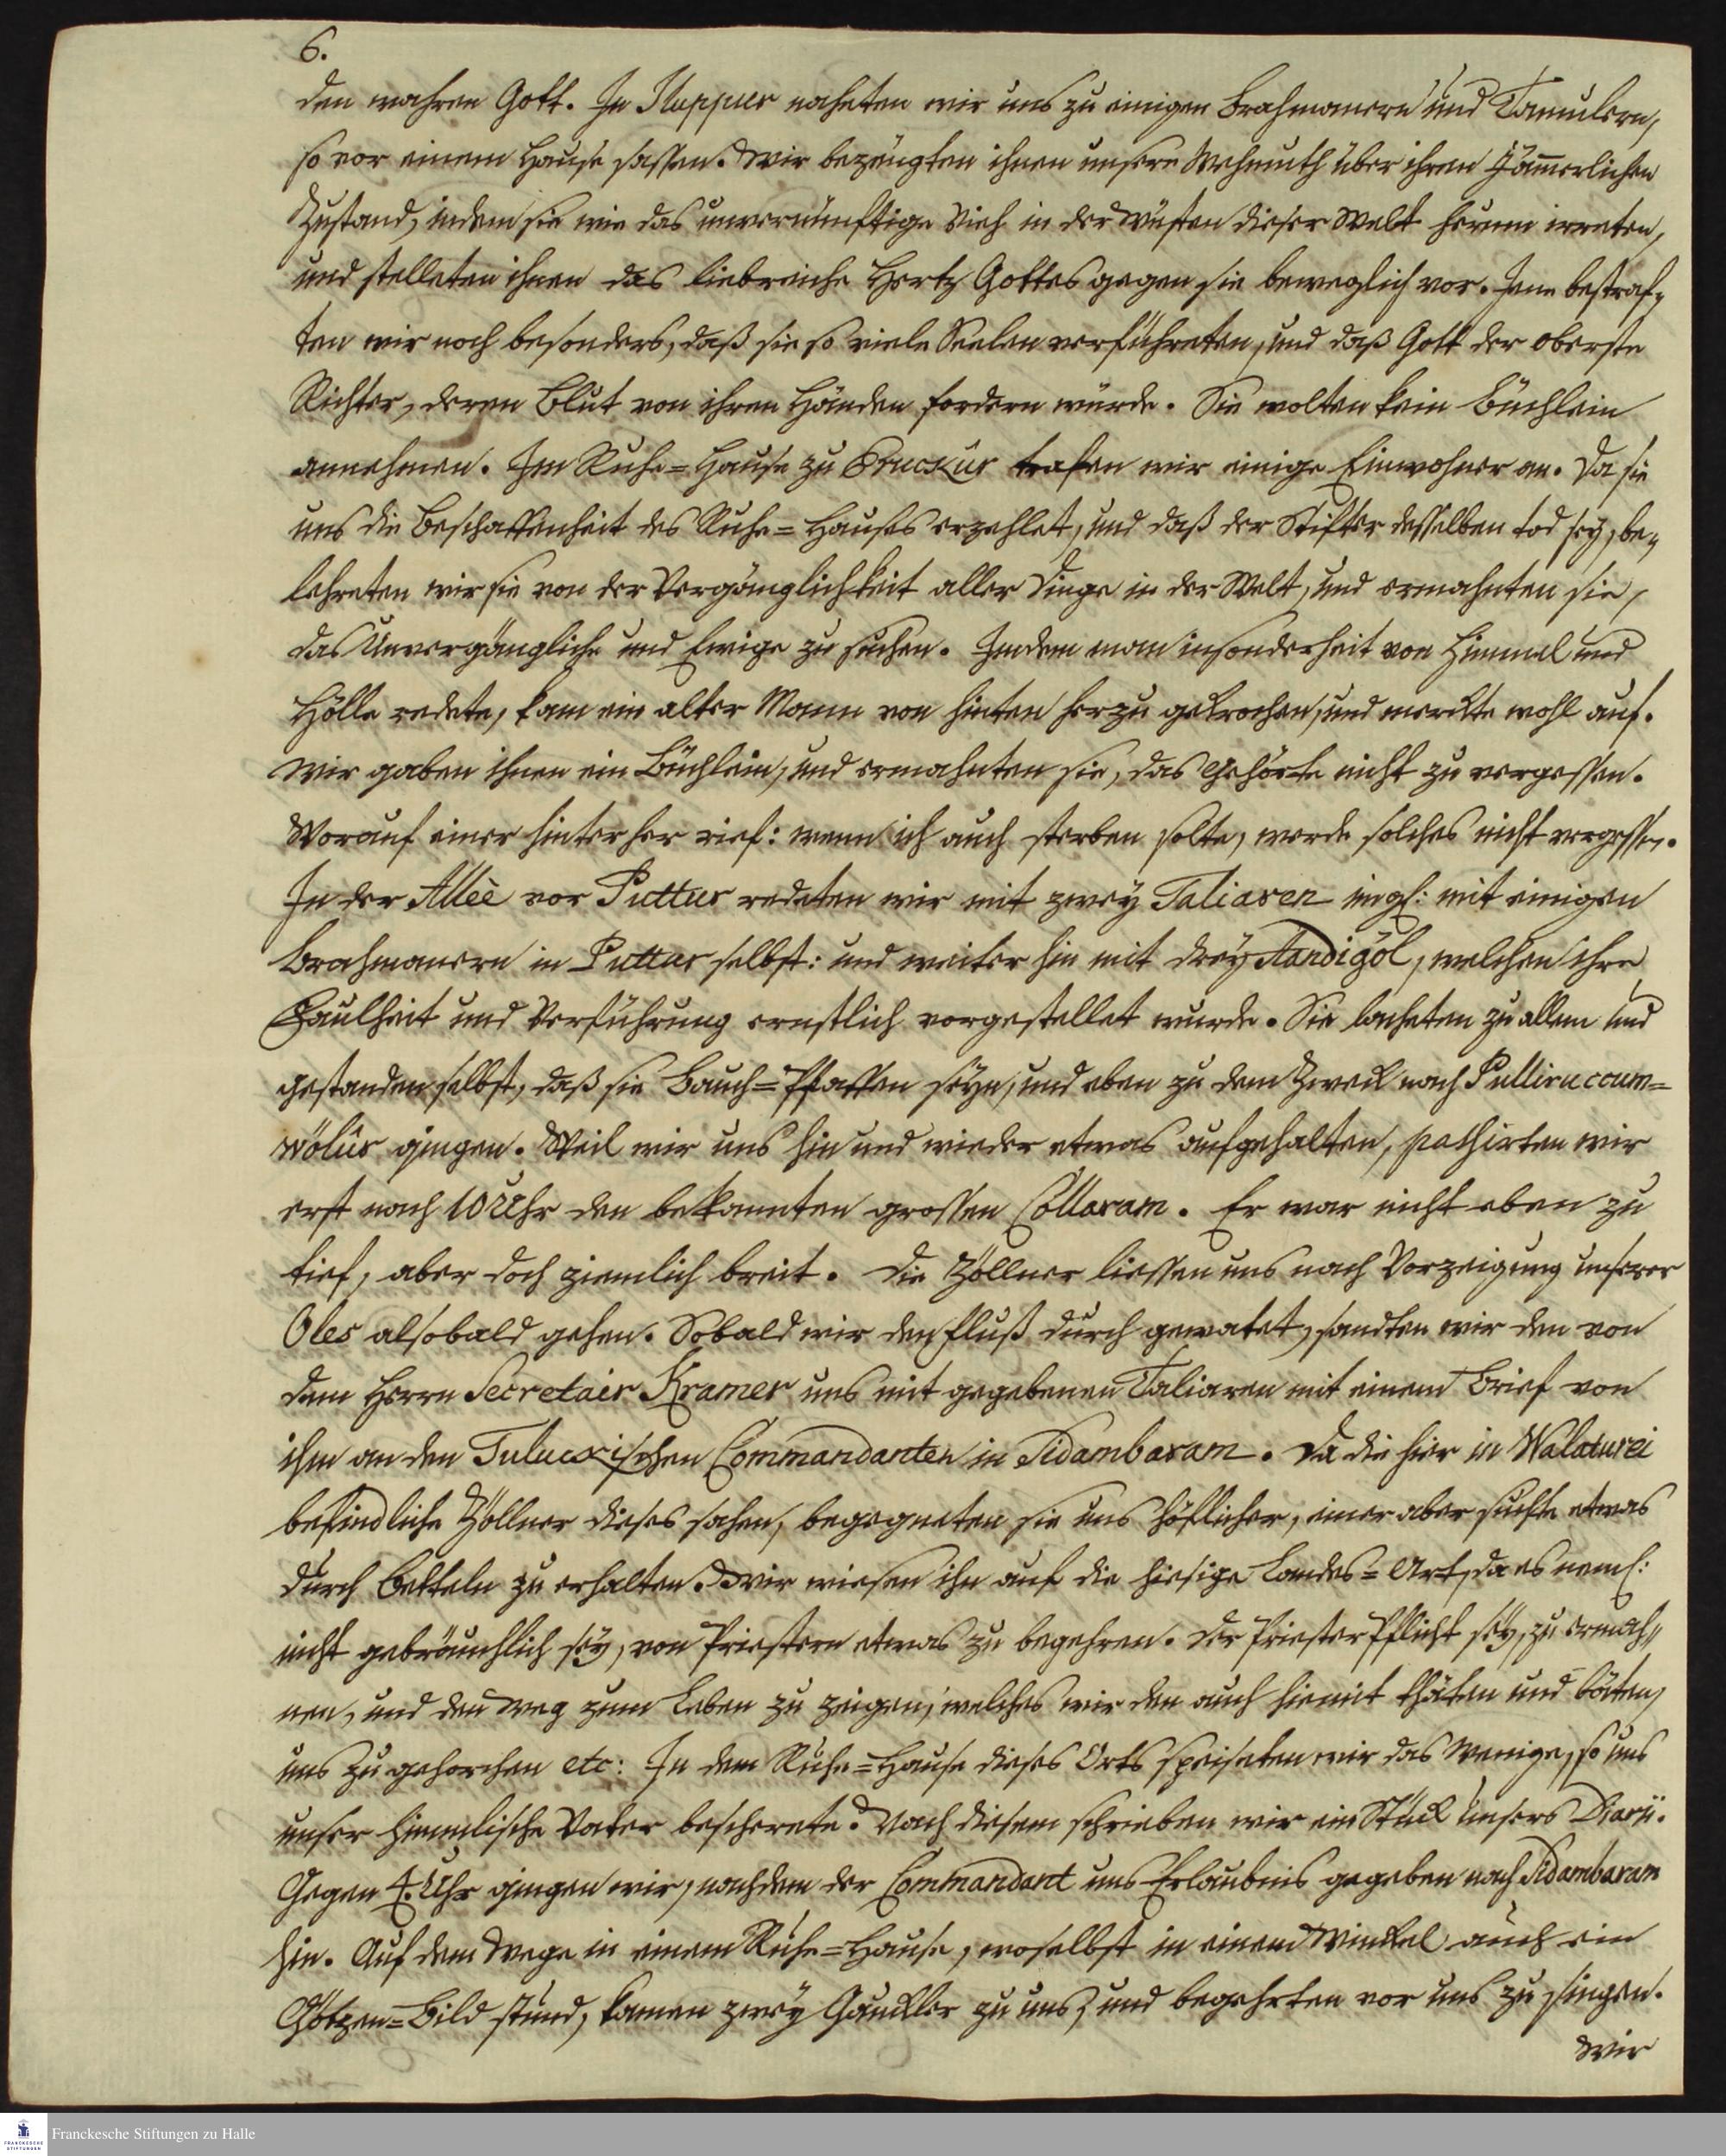 6.
den wahren Gott. In Nuppur naheten wir uns zu einigen Brahmanern und Tamulern,
so vor einem Hause sassen. Wir bezeugten ihnen unsere Wehmuth über ihren jäm̄erlichen
Zustand, indem sie wie das unvernünftige Vieh in der Wüsten dieser Welt herum irreten,
und stelleten ihnen das liebreiche Hertz Gottes gegen sie beweglich vor. Jene bestraf-
ten wir noch besonders, daß sie so viele Seelen verführeten, und daß Gott der oberste
Richter, deren Blut von ihren Händen fordern würde. Sie wolten kein Büchlein
annehmen. Im Ruhe=Hause zu Eruckur trafen wir einige Einwohner an. Da sie
uns die Beschaffenheit des Ruhe=Hauses erzehlet, und daß der Stifter desselben tod sey, be-
lehreten wir sie von der Vergänglichkeit aller Dinge in der Welt, und ermahnten sie,
das Unvergängliche und Ewige zu suchen. Indem man insonderheit von Himmel und
Hölle redete, kam ein alter Mann von hinten herzu gekrochen, und merckte wohl auf.
Wir gaben ihnen ein Büchlein, und ermahnten sie, das Gehörte nicht zu vergessen.
Worauf einer hinter her rief: wenn ich auch sterben solte, werde solches nicht vergessen.
In der Alleè vor Puttur redeten wir mit zwey Taliaren imgl: mit einigen
Brahmanern in Puttur selbst: und weiter hin mit drey Aandigöl, welchen ihre
Faulheit und Verführung ernstlich vorgestellet wurde. Sie lacheten zu allem und
gestanden selbst, daß sie Bauch=Pfaffen seyn, und eben zu dem Zweck nach Pulliruccum=
wölûr gingen. Weil wir uns hin und wieder etwas aufgehalten, paßirten wir
erst nach 10 Uhr den bekannten grossen Collaram. Er war nicht eben zu
tief, aber doch ziemlich breit. Die Zöllner liessen uns nach Vorzeigung unserer
Oles alsobald gehen. Sobald wir den Fluß durch gewatet, sandten wir den von
dem Herrn Secretair Kramer uns mit gegebenen Taliaren mit einem Brief von
ihm an den Tuluckischen Commandanten in Sidambaram. Da die hier in Walaturei
befindliche Zöllner dieses sahen, begegneten sie uns höflicher, einer aber suchte etwas
durch Betteln zu erhalten. Wir wiesen ihn auf die hiesige Landes=Art, da es neml:
nicht gebräuchlich sey, von Priestern etwas zu begehren. Der Priester Pflicht sey, zu ermah-
nen, und den Weg zum Leben zu zeigen, welches wir den auch hiemit thäten und bäten,
uns zu gehorchen etc: In dem Ruhe=Hause dieses Orts speiseten wir das Wenige, so uns
unser himmlische Vater bescherete. Nach diesem schrieben wir ein Stück unsers Diarii.
Gegen 4. Uhr gingen wir, nachdem der Commandant uns Erlaubnis gegeben nach Sidambaram
hin. Auf dem Wege in einem Ruhe=Hause, woselbst in einem Winckel auch ein
Götzen=Bild stund, kamen zwey Gauckler zu uns, und begehrten vor uns zu singen.
Wir
Franckesche Stiftungen zu Halle
FRANCKESCHE
STIFTUNGEN